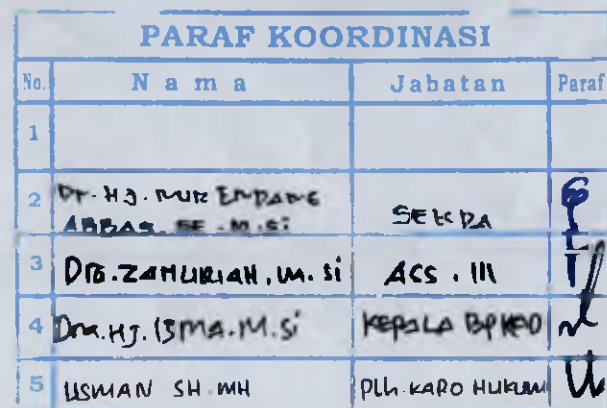 PARAF KOORDINASI
No. Nama Jabatan Paraf
1
2 Dr. Hj. NUR ENDANG
ABBAS. SE. M.Si SEKDA
3 Dra. ZAHURIAH, M. Si ASS. III
4 Dra. Hj. ISMA. M. Si KEPALA BPKAD
5 USMAN SH. MH Plh. KARO HUKUM